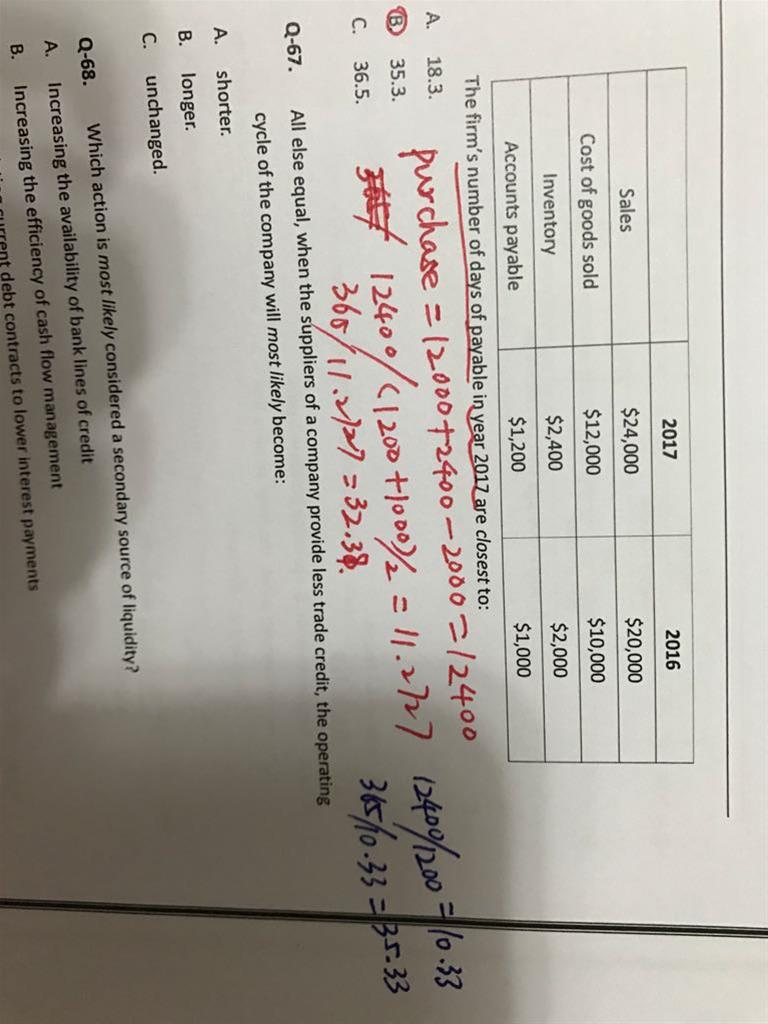 2017 2016
Sales $24,000 $20,000
Cost of goods sold $12,000 $10,000
Inventory $2,400 $2,000
Accounts payable $1,200 $1,000
The firm's number of days of payable in year 2017 are closest to:
A. 18.3.
B 35.3.
C. 36.5.
purchase = 12000+2400-2000=12400
12400/(1200+1000)/2 = 11.2727
365/11.2727 = 32.38.
12400/1200 = 10.33
365/10.33 = 35.33
Q-67. All else equal, when the suppliers of a company provide less trade credit, the operating
cycle of the company will most likely become:
A. shorter.
B. longer.
C. unchanged.
Q-68. Which action is most likely considered a secondary source of liquidity?
A. Increasing the availability of bank lines of credit
B. Increasing the efficiency of cash flow management
current debt contracts to lower interest payments